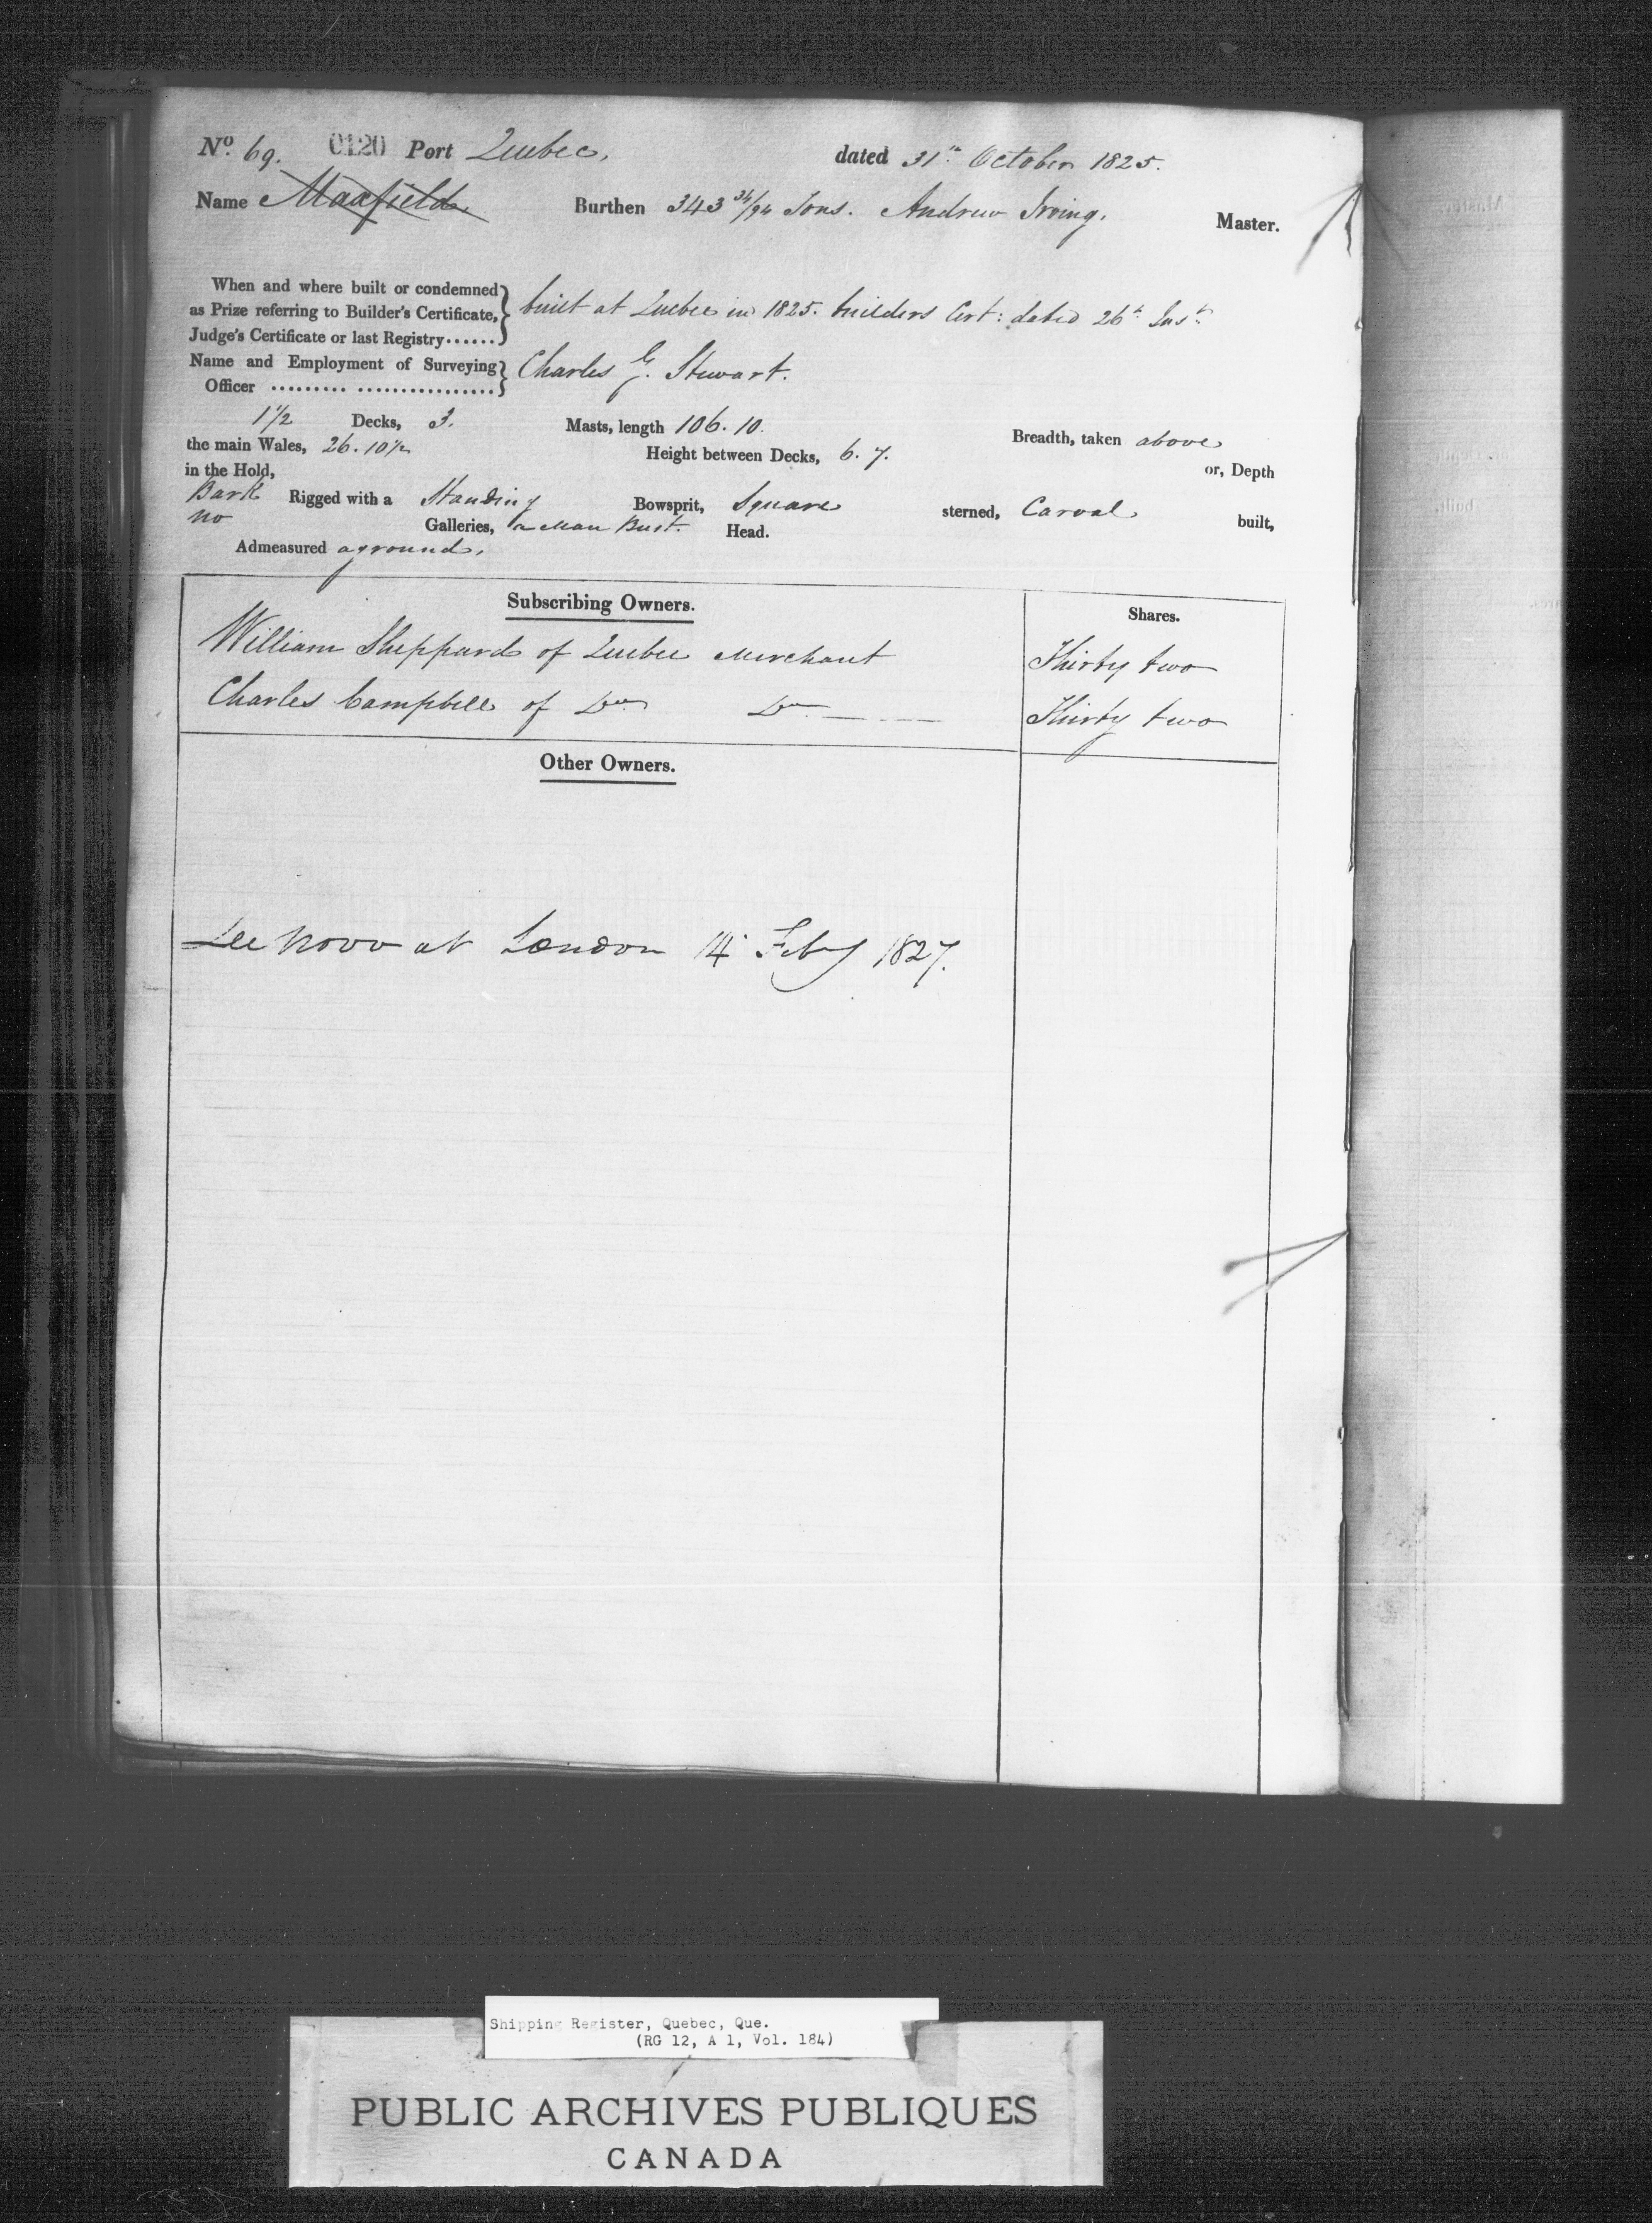 No. 69. 0120 Port Quebec, dated 31st October 1825.
Name Maxfield. Burthen 343 34/94 Tons. Andrew Irving. Master.
When and where built or condemned
as Prize referring to Builder's Certificate, built at Quebec in 1825. builders Cert: dated 26th Inst.
Judge's Certificate or last Registry......
Name and Employment of Surveying Charles G. Stewart.
Officer ......... .................
1 1/2 Decks, 3. Masts, length 106.10. Breadth, taken above
the main Wales, 26.10 1/2 Height between Decks, 6.7. or, Depth
in the Hold,
Bark Rigged with a Standing Bowsprit, Square sterned, Carvel built,
no Galleries, a Man Bust. Head.
Admeasured aground.
Subscribing Owners. Shares.
William Sheppard of Quebec Merchant Thirty two
Charles Campbell of Do Do Thirty two
Other Owners.
De Novo at London 14 Feby 1827.
Shipping Register, Quebec, Que.
(RG 12, A 1, Vol. 184)
PUBLIC ARCHIVES PUBLIQUES
CANADA